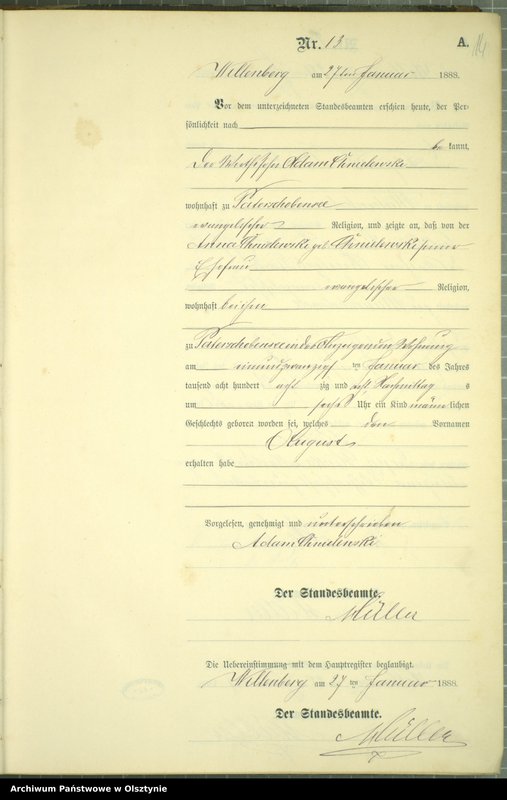 Nr. 13
A.
114
Willenberg am 27ten Januar 1888.
Vor dem unterzeichneten Standesbeamten erschien heute, der Per-
sönlichkeit nach
be kannt,
Der Adam Chmielewski
wohnhaft zu
evangelischer Religion, und zeigte an, daß von der
Anna Chmielewski geb. Chmielewski seiner
Ehefrau
evangelischer Religion,
wohnhaft bei ihm
zu in der Wohnung
am einundzwanzigsten Januar des Jahres
tausend acht hundert acht zig und acht Nachmittag s
um sechs Uhr ein Kind männ lichen
Geschlechts geboren worden sei, welches den Vornamen
August
erhalten habe
Vorgelesen, genehmigt und unterschrieben
Adam Chmielewski
Der Standesbeamte.
Müller
Die Uebereinstimmung mit dem Hauptregister beglaubigt.
Willenberg am 27 ten Januar 1888.
Der Standesbeamte.
Müller
Archiwum Państwowe w Olsztynie